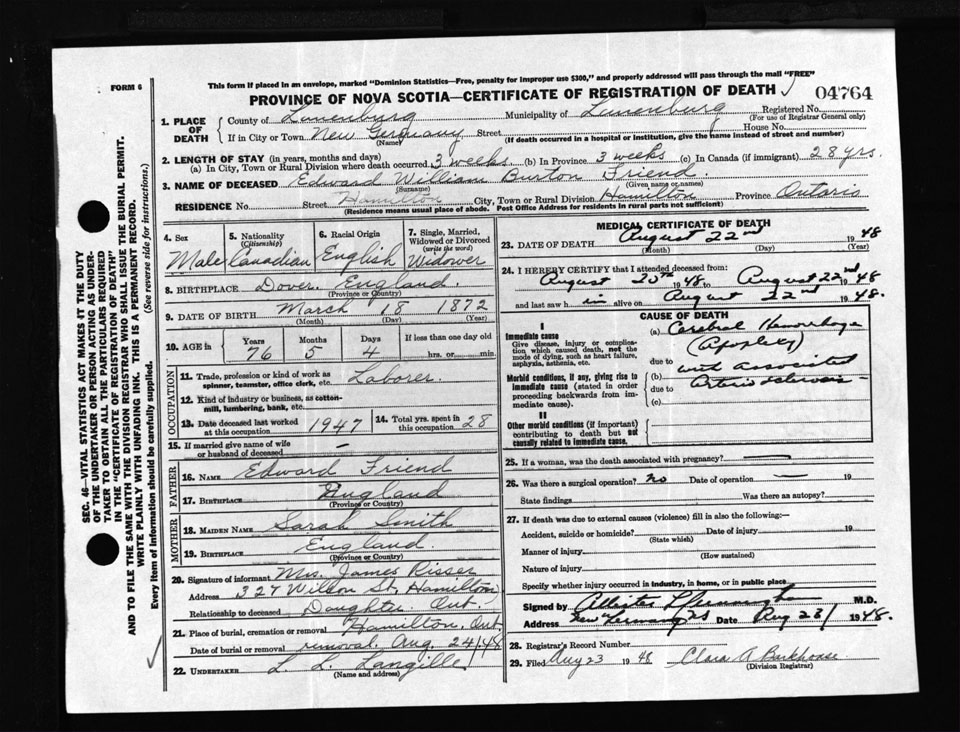 FORM 6
This form if placed in an envelope, marked "Dominion Statistics—Free, penalty for improper use $300," and properly addressed will pass through the mail "FREE"
PROVINCE OF NOVA SCOTIA—CERTIFICATE OF REGISTRATION OF DEATH
04764
1. PLACE OF DEATH
County of Lunenburg Municipality of Lunenburg Registered No.
(For use of Registrar General only)
If in City or Town New Germany Street House No.
(Name) (If death occurred in a hospital or institution, give the name instead of street and number)
2. LENGTH OF STAY (in years, months and days)
(a) In City, Town or Rural Division where death occurred 3 weeks (b) In Province 3 weeks (c) In Canada (if immigrant) 28 yrs.
3. NAME OF DECEASED Edward William Burton Friend.
(Surname) (Given name or names)
RESIDENCE No. Street Hamilton City, Town or Rural Division Hamilton Province Ontario
(Residence means usual place of abode. Post Office Address for residents in rural parts not sufficient)
4. Sex
Male
5. Nationality (Citizenship)
Canadian
6. Racial Origin
English
7. Single, Married, Widowed or Divorced (write the word)
Widower
8. BIRTHPLACE Dover. England.
(Province or Country)
9. DATE OF BIRTH March 18 1872
(Month) (Day) (Year)
10. AGE in
Years Months Days If less than one day old
76 5 4 hrs. or min.
OCCUPATION
11. Trade, profession or kind of work as spinner, teamster, office clerk, etc. Laborer.
12. Kind of industry or business, as cotton-mill, lumbering, bank, etc.
13. Date deceased last worked at this occupation 1947
14. Total yrs. spent in this occupation 28
15. If married give name of wife or husband of deceased –
FATHER
16. Name Edward Friend
17. Birthplace England
(Province or Country)
MOTHER
18. Maiden Name Sarah Smith
19. Birthplace England.
(Province or Country)
20. Signature of informant Mrs. James Risser
Address 327 Wilson St. Hamilton
Relationship to deceased Daughter. Ont.
21. Place of burial, cremation or removal Hamilton, Ont.
Date of burial or removal removal. Aug. 24/48
22. UNDERTAKER L. L. Langille
(Name and address)
MEDICAL CERTIFICATE OF DEATH
23. DATE OF DEATH August 22nd 1948
(Month) (Day) (Year)
24. I HEREBY CERTIFY that I attended deceased from:
August 20th 1948 to August 22nd 1948
and last saw him alive on August 22nd 1948.
CAUSE OF DEATH
I
Immediate cause
Give disease, injury or complication which caused death, not the mode of dying, such as heart failure, asphyxia, asthenia, etc.
(a) Cerebral Hemorrhage
(Apoplexy)
due to with associated
Morbid conditions, if any, giving rise to immediate cause (stated in order proceeding backwards from immediate cause).
(b) Arteriosclerosis
due to
(c)
II
Other morbid conditions (if important) contributing to death but not causally related to immediate cause.
25. If a woman, was the death associated with pregnancy?
26. Was there a surgical operation? no Date of operation — 19
State findings Was there an autopsy?
27. If death was due to external causes (violence) fill in also the following:—
Accident, suicide or homicide? Date of injury 19
(State which)
Manner of injury
(How sustained)
Nature of injury
Specify whether injury occurred in industry, in home, or in public place
Signed by M.D.
Address New Germany NS Date Aug 23/ 1948.
28. Registrar's Record Number
29. Filed Aug 23 1948 Clara A Barkhouse
(Division Registrar)
SEC. 46—VITAL STATISTICS ACT MAKES IT THE DUTY
OF THE UNDERTAKER OR PERSON ACTING AS UNDER-
TAKER TO OBTAIN ALL THE PARTICULARS REQUIRED
IN THE "CERTIFICATE OF REGISTRATION OF DEATH"
AND TO FILE THE SAME WITH THE DIVISION REGISTRAR WHO SHALL ISSUE THE BURIAL PERMIT.
WRITE PLAINLY WITH UNFADING INK. THIS IS A PERMANENT RECORD.
Every item of information should be carefully supplied. (See reverse side for instructions.)